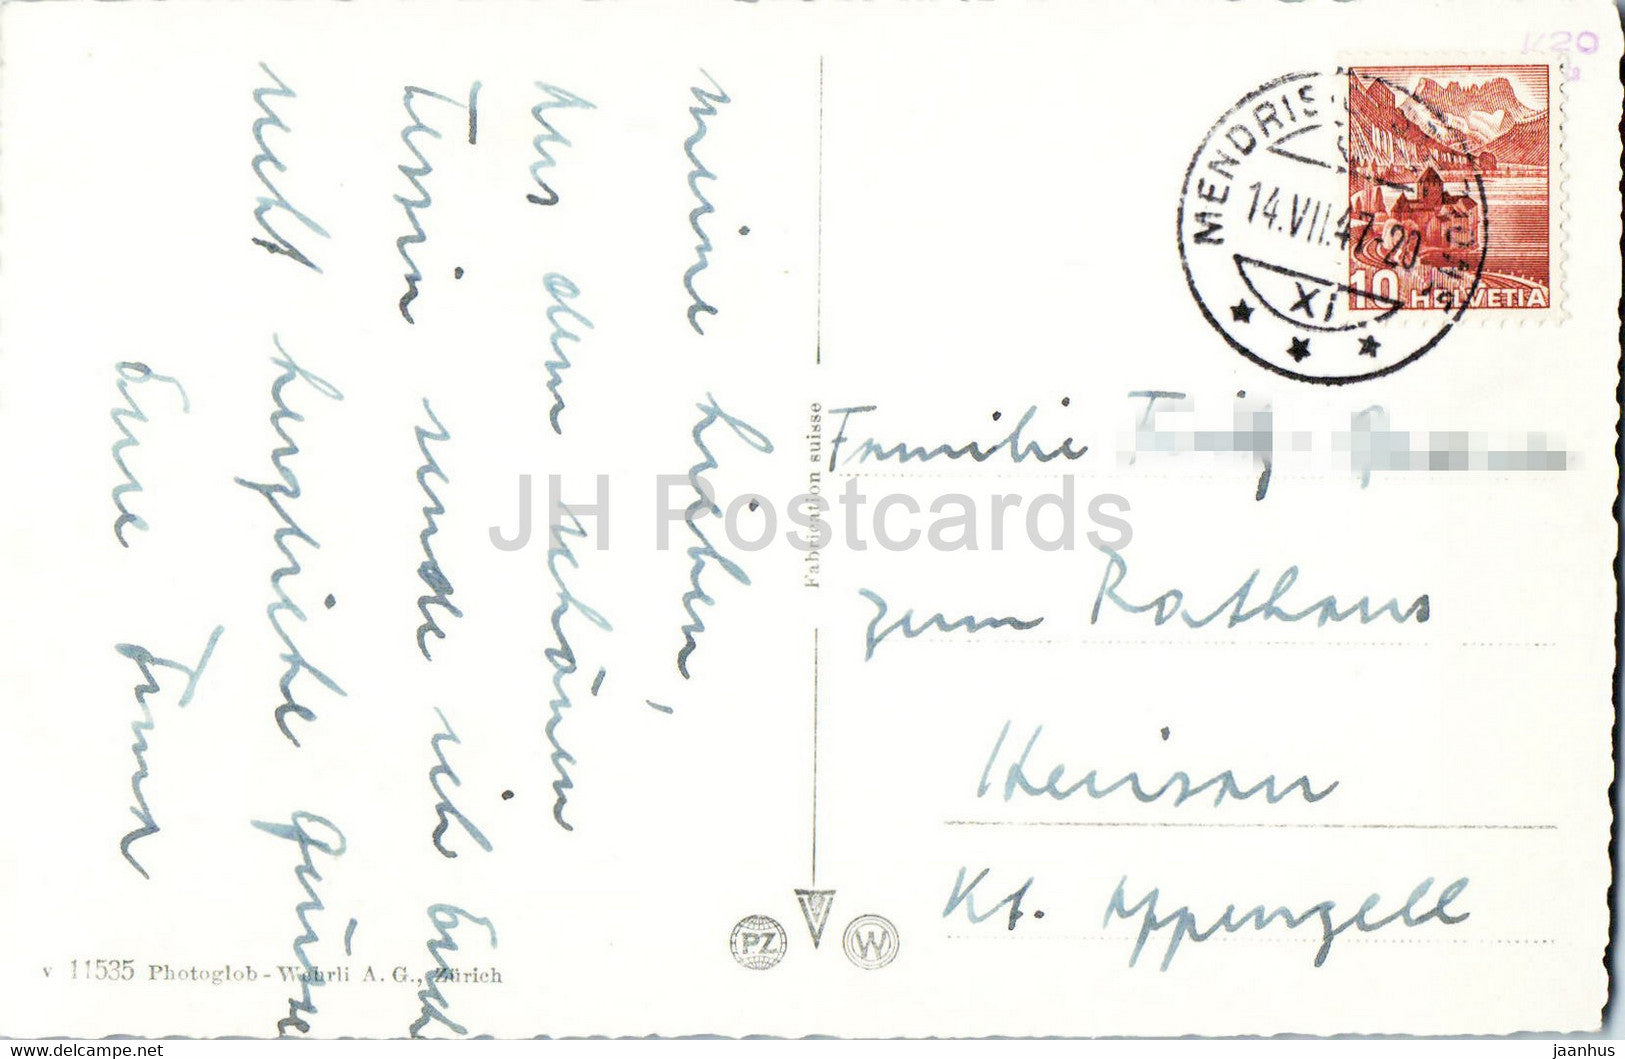 meine lieben,
Aus dem schönen
Tessin sende ich Euch
recht herzliche Grüsse
Eure
v 11535 Photoglob-Wehrli A. G., Zürich
Fabrication suisse
PZ
W
MENDRIS
14.VII.47.20
XI
10 HELVETIA
Familie
zum Rathaus
Herisau
Kt. Appenzell
JH Postcards
www.delcampe.net
jaanhus